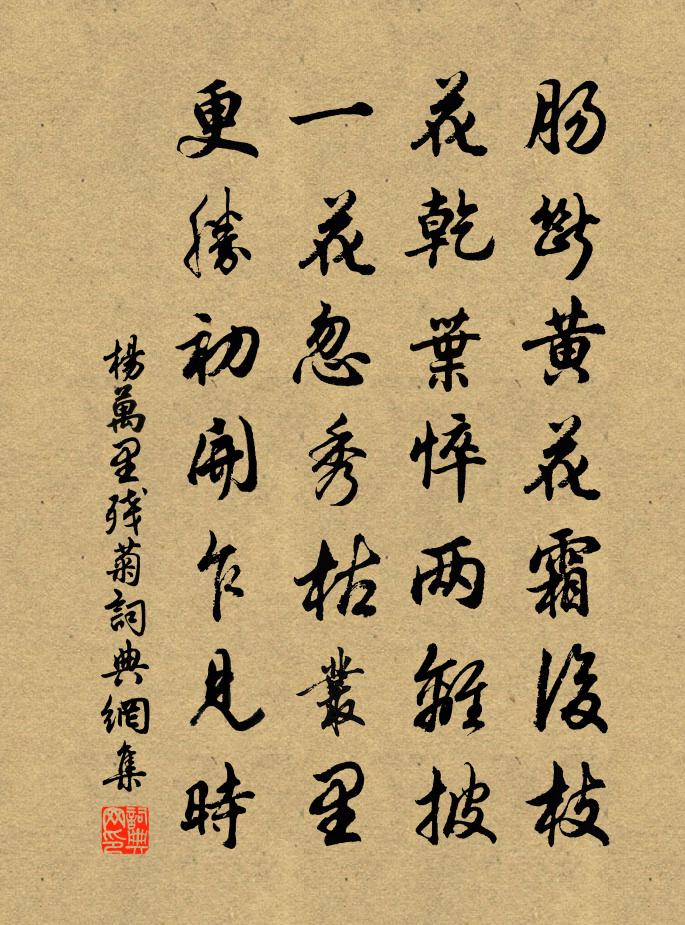 肠斷黄花霜後枝
花乾葉悴两離披
一花忽秀枯叢里
更勝初開乍見時
楊萬里残菊詞典網集
詞典网印